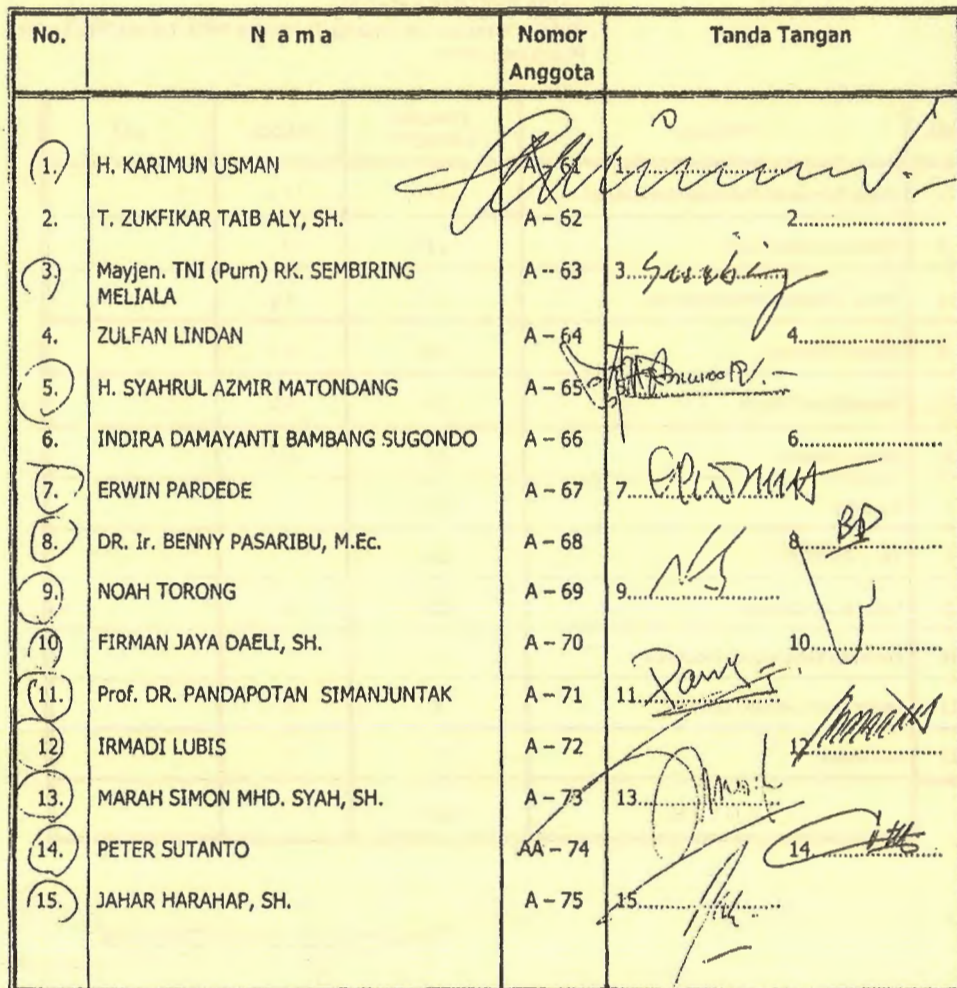 No. N a m a Nomor Anggota Tanda Tangan
1. H. KARIMUN USMAN A - 61 1.
2. T. ZUKFIKAR TAIB ALY, SH. A – 62 2.
3. Mayjen. TNI (Purn) RK. SEMBIRING A -- 63 3.
MELIALA
4. ZULFAN LINDAN A – 64 4.
5. H. SYAHRUL AZMIR MATONDANG A – 65 5.
6. INDIRA DAMAYANTI BAMBANG SUGONDO A – 66 6.
7. ERWIN PARDEDE A – 67 7
8. DR. Ir. BENNY PASARIBU, M.Ec. A – 68 8
9. NOAH TORONG A – 69 9.
10 FIRMAN JAYA DAELI, SH. A – 70 10.
11. Prof. DR. PANDAPOTAN SIMANJUNTAK A – 71 11.
12 IRMADI LUBIS A – 72 12
13. MARAH SIMON MHD. SYAH, SH. A – 73 13.
14. PETER SUTANTO AA – 74 14.
15. JAHAR HARAHAP, SH. A – 75 15.